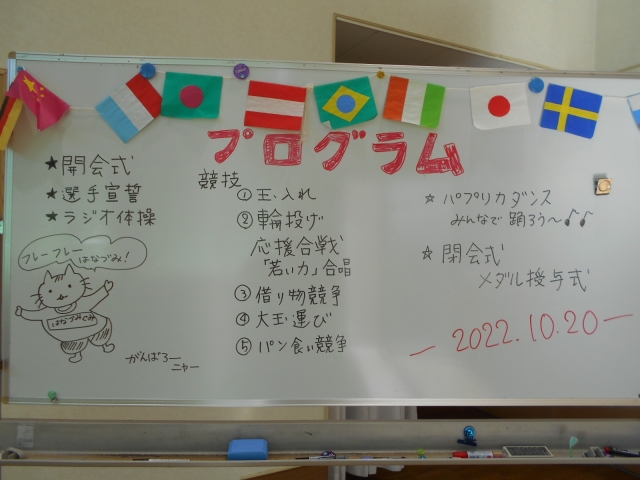 プログラム
★開会式
★選手宣誓
★ラジオ体操
フレーフレー
はなづみ!
はなづみぐみ
がんばろー
ニャー
競技
①玉入れ
②輪投げ
応援合戦
「若い力」合唱
③借り物競争
④大玉運び
⑤パン食い競争
☆パプリカダンス
みんなで踊ろう〜♪♪
☆閉会式
メダル授与式
ー2022.10.20ー